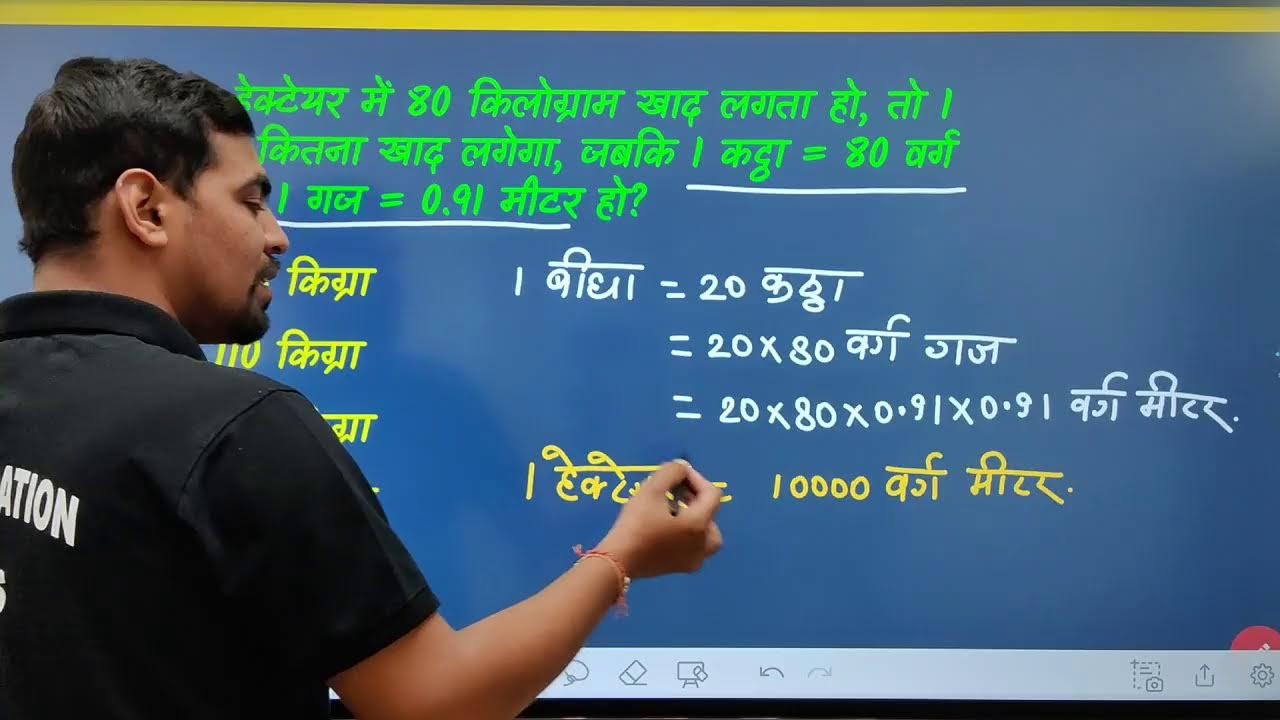 हेक्टेयर में 80 किलोग्राम खाद लगता हो, तो 1
कितना खाद लगेगा, जबकि 1 कट्ठा = 80 वर्ग
1 गज = 0.91 मीटर हो?
किग्रा
110 किग्रा
1 बीघा = 20 कट्ठा
= 20×80 वर्ग गज
= 20×80×0.91×0.91 वर्ग मीटर.
1 = 10000 वर्ग मीटर.
ATION
S